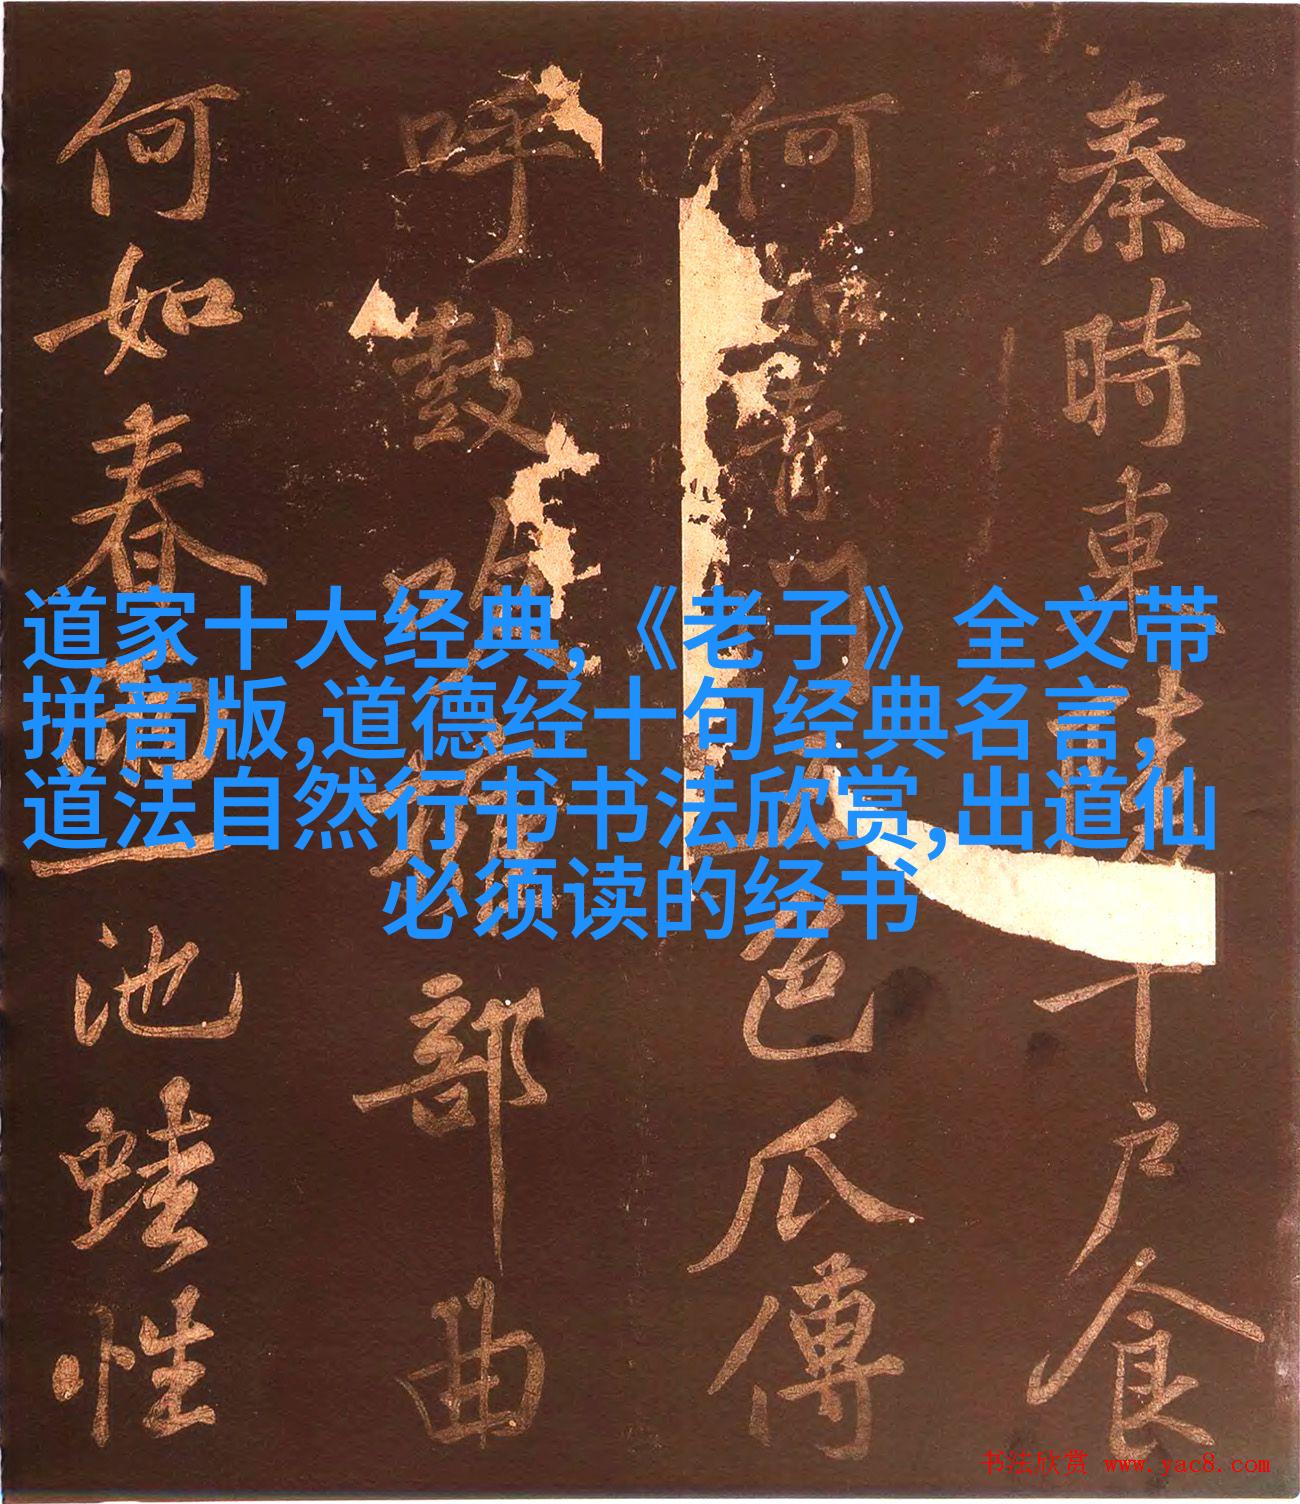 道家十大经典,《老子》全文带
拼音版,道德经十句经典名言,
道法自然行书书法欣赏,出道仙
必须读的经书
秦時東戶食
何如青門色瓜傅
呼鼓吹部曲
何如春一池蛙性
书法欣赏 www.yac8.com